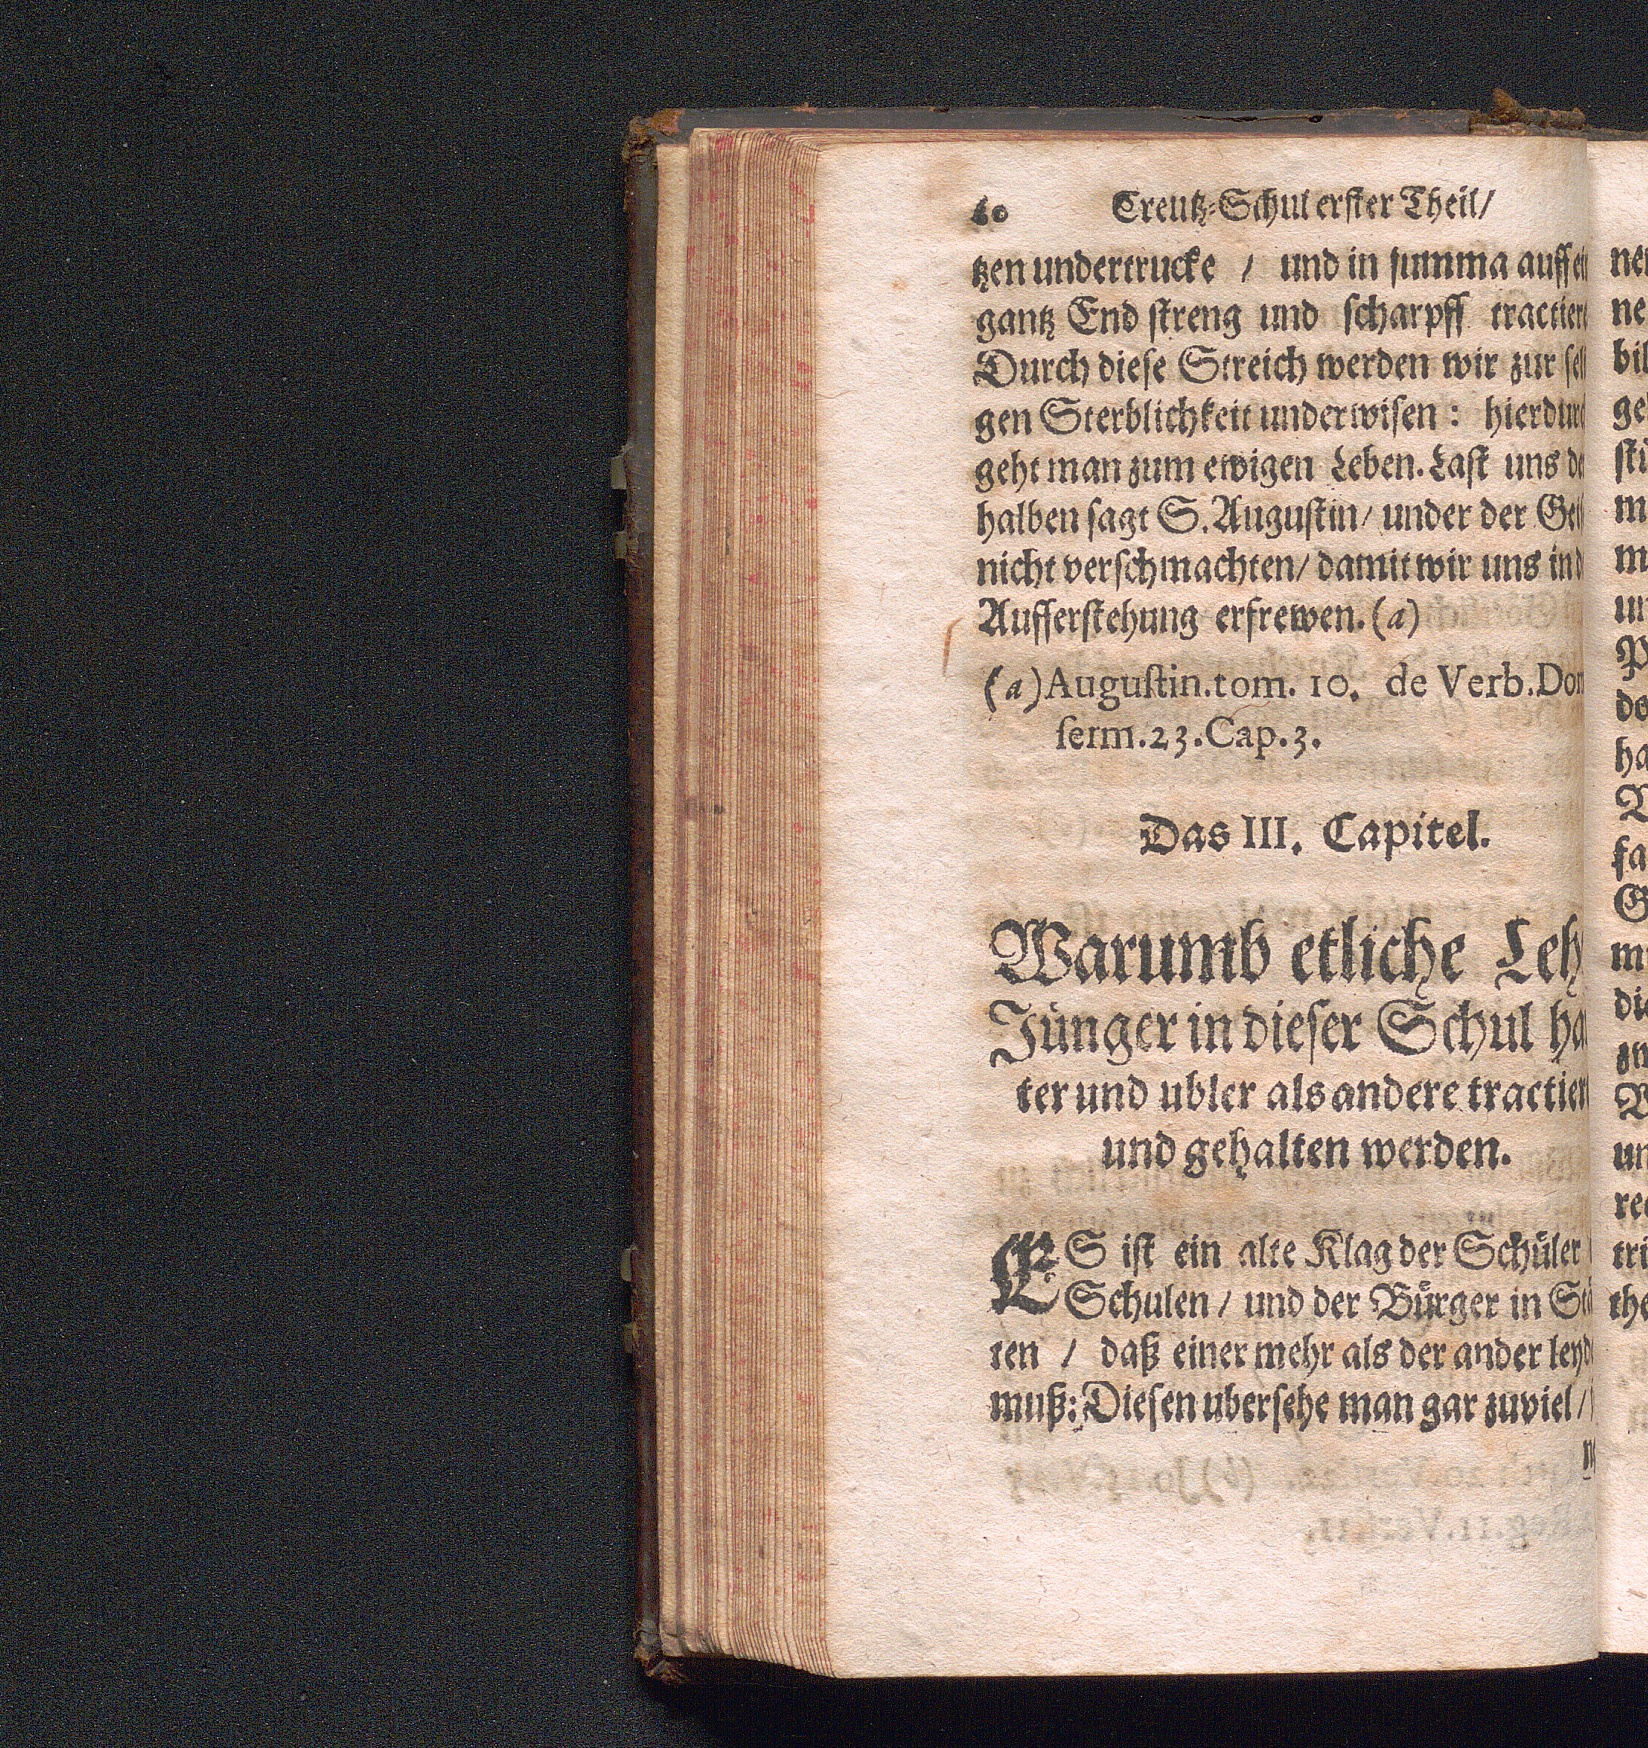 60 Creutz-Schul erster Theil/
tzen undertrucke / und in summa auff
gantz End streng und scharpff tractiert
Durch diese Streich werden wir zur
gen Sterblichkeit underwisen: hierdurch
geht man zum ewigen Leben. Last uns
halben sagt S. Augustin/ under der
nicht verschmachten/ damit wir uns in
Aufferstehung erfrewen. (a)
(a) Augustin. tom. 10. de Verb. Dom
serm. 23. Cap. 3.
Das III. Capitel.
Warumb etliche Leh
Jünger in dieser Schul
ter und ubler als andere tractiert
und gehalten werden.
ES ist ein alte Klag der Schüler
Schulen / und der Bürger in
ten / daß einer mehr als der ander
muß: Diesen ubersehe man gar zuviel /